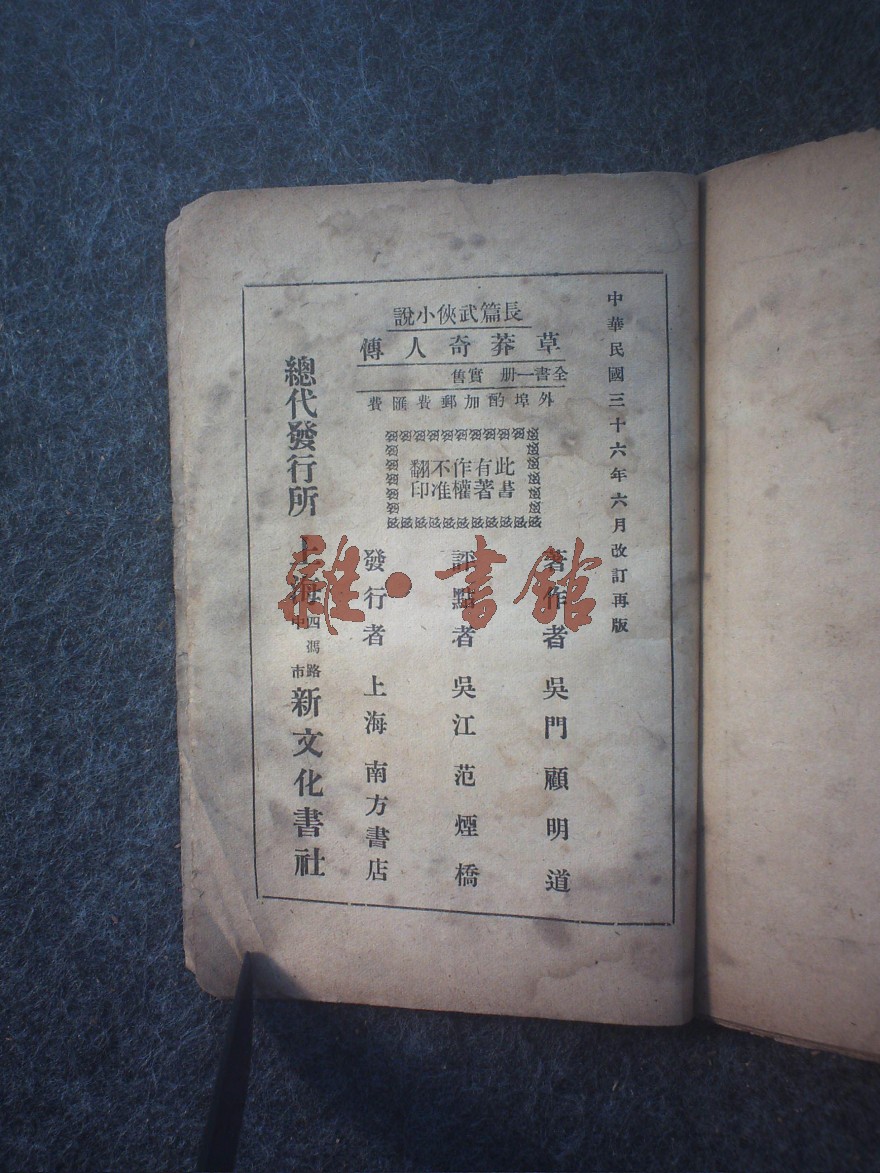 中華民國三十六年六月改訂再版
長篇武俠小說
草莽奇人傳
全書一册 實售
外埠酌加郵費匯費
此書
有著
作權
不准
翻印
著作者 吳門顧明道
評點者 吳江范煙橋
發行者 上海南方書店
總代發行所 上海四馬路中市 新文化書社
雜·書館